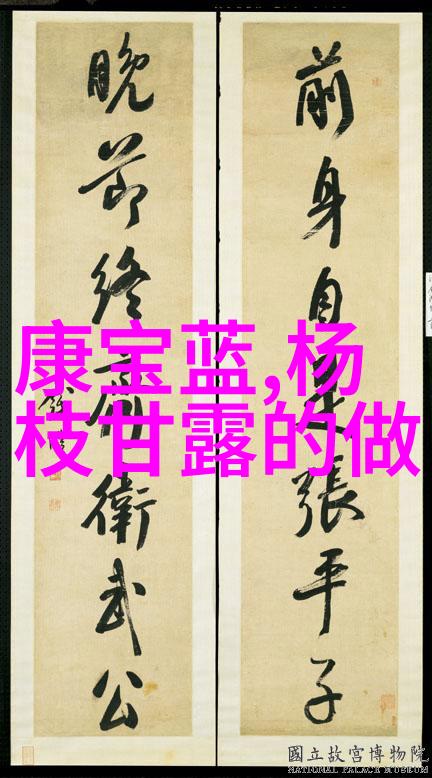 前身自是張平子
晚節終藺衛武公
康宝蓝,杨
枝甘露的做
國立故宮博物院
NATIONAL PALACE MUSEUM